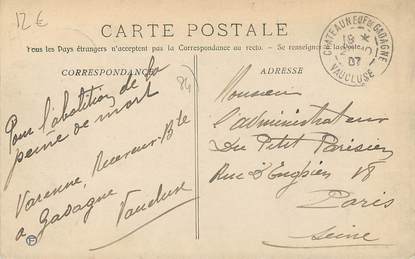 12 €
CARTE POSTALE
Tous les Pays étrangers n'acceptent pas la Correspondance au recto. — Se renseigner à la Poste.
CORRESPONDANCE
ADRESSE
CHATEAUNEUF DE GADAGNE
VAUCLUSE
07
84
Pour l'abolition de la
peine de mort
Varenne, Receveur-Bte
a Gadagne
Vaucluse
Monsieur
l'administrateur
Du Petit Parisien
Rue d'Enghien 18
Paris
Seine